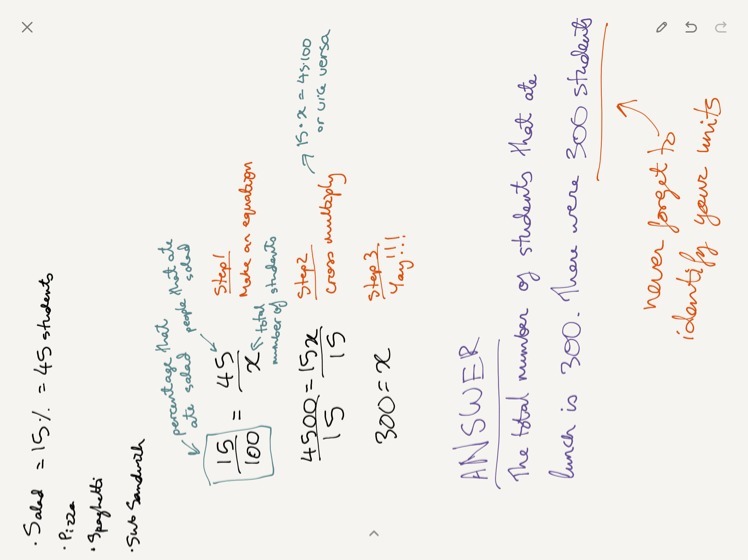 · Salad = 15% = 45 students
· Pizza
· Spaghetti
· Sub Sandwich
percentage that
ate salad
people that ate
salad
15/100 = 45/x
total
number of students
Step 1
Make an equation
4500/15 = 15x/15
Step 2
Cross multiply
→ 15·x = 45·100
or vice versa
300 = x
Step 3
Yay!!!
ANSWER
The total number of students that ate
lunch is 300. There were 300 students
never forget to
identify your units